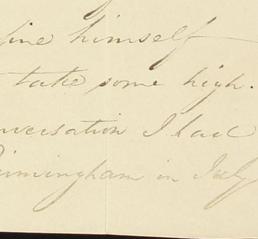 fine himself
take some high.
nversation I had
Birmingham in July